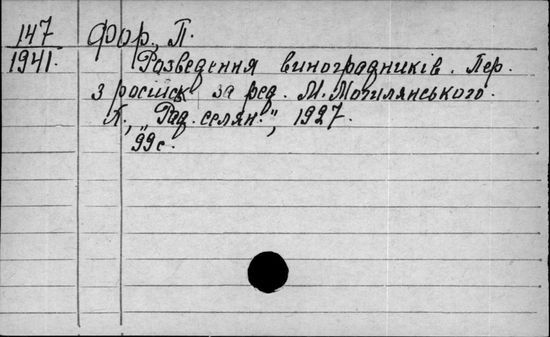 147 Фор, П.
1941. Розведення виноградників. Пер.
з російськ за ред. М. Могилянського.
К., "Рад. селян.", 1927.
99 с.